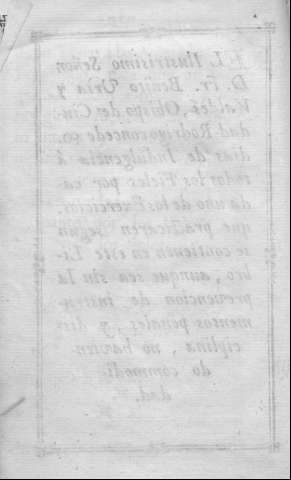 EL Ilustrissimo Señor
D. Fr. Benito Uria y
Valdés, Obispo de Ciu-
dad Rodrigo concede 40.
dias de Indulgencia à
todos los Fieles por ca-
da uno de los Exercicios,
que practicaren segun
se contienen en este Li-
bro, aunque sea sin la
prevencion de instru-
mentos penales, y dis-
ciplina, no havien-
do commodi-
dad.